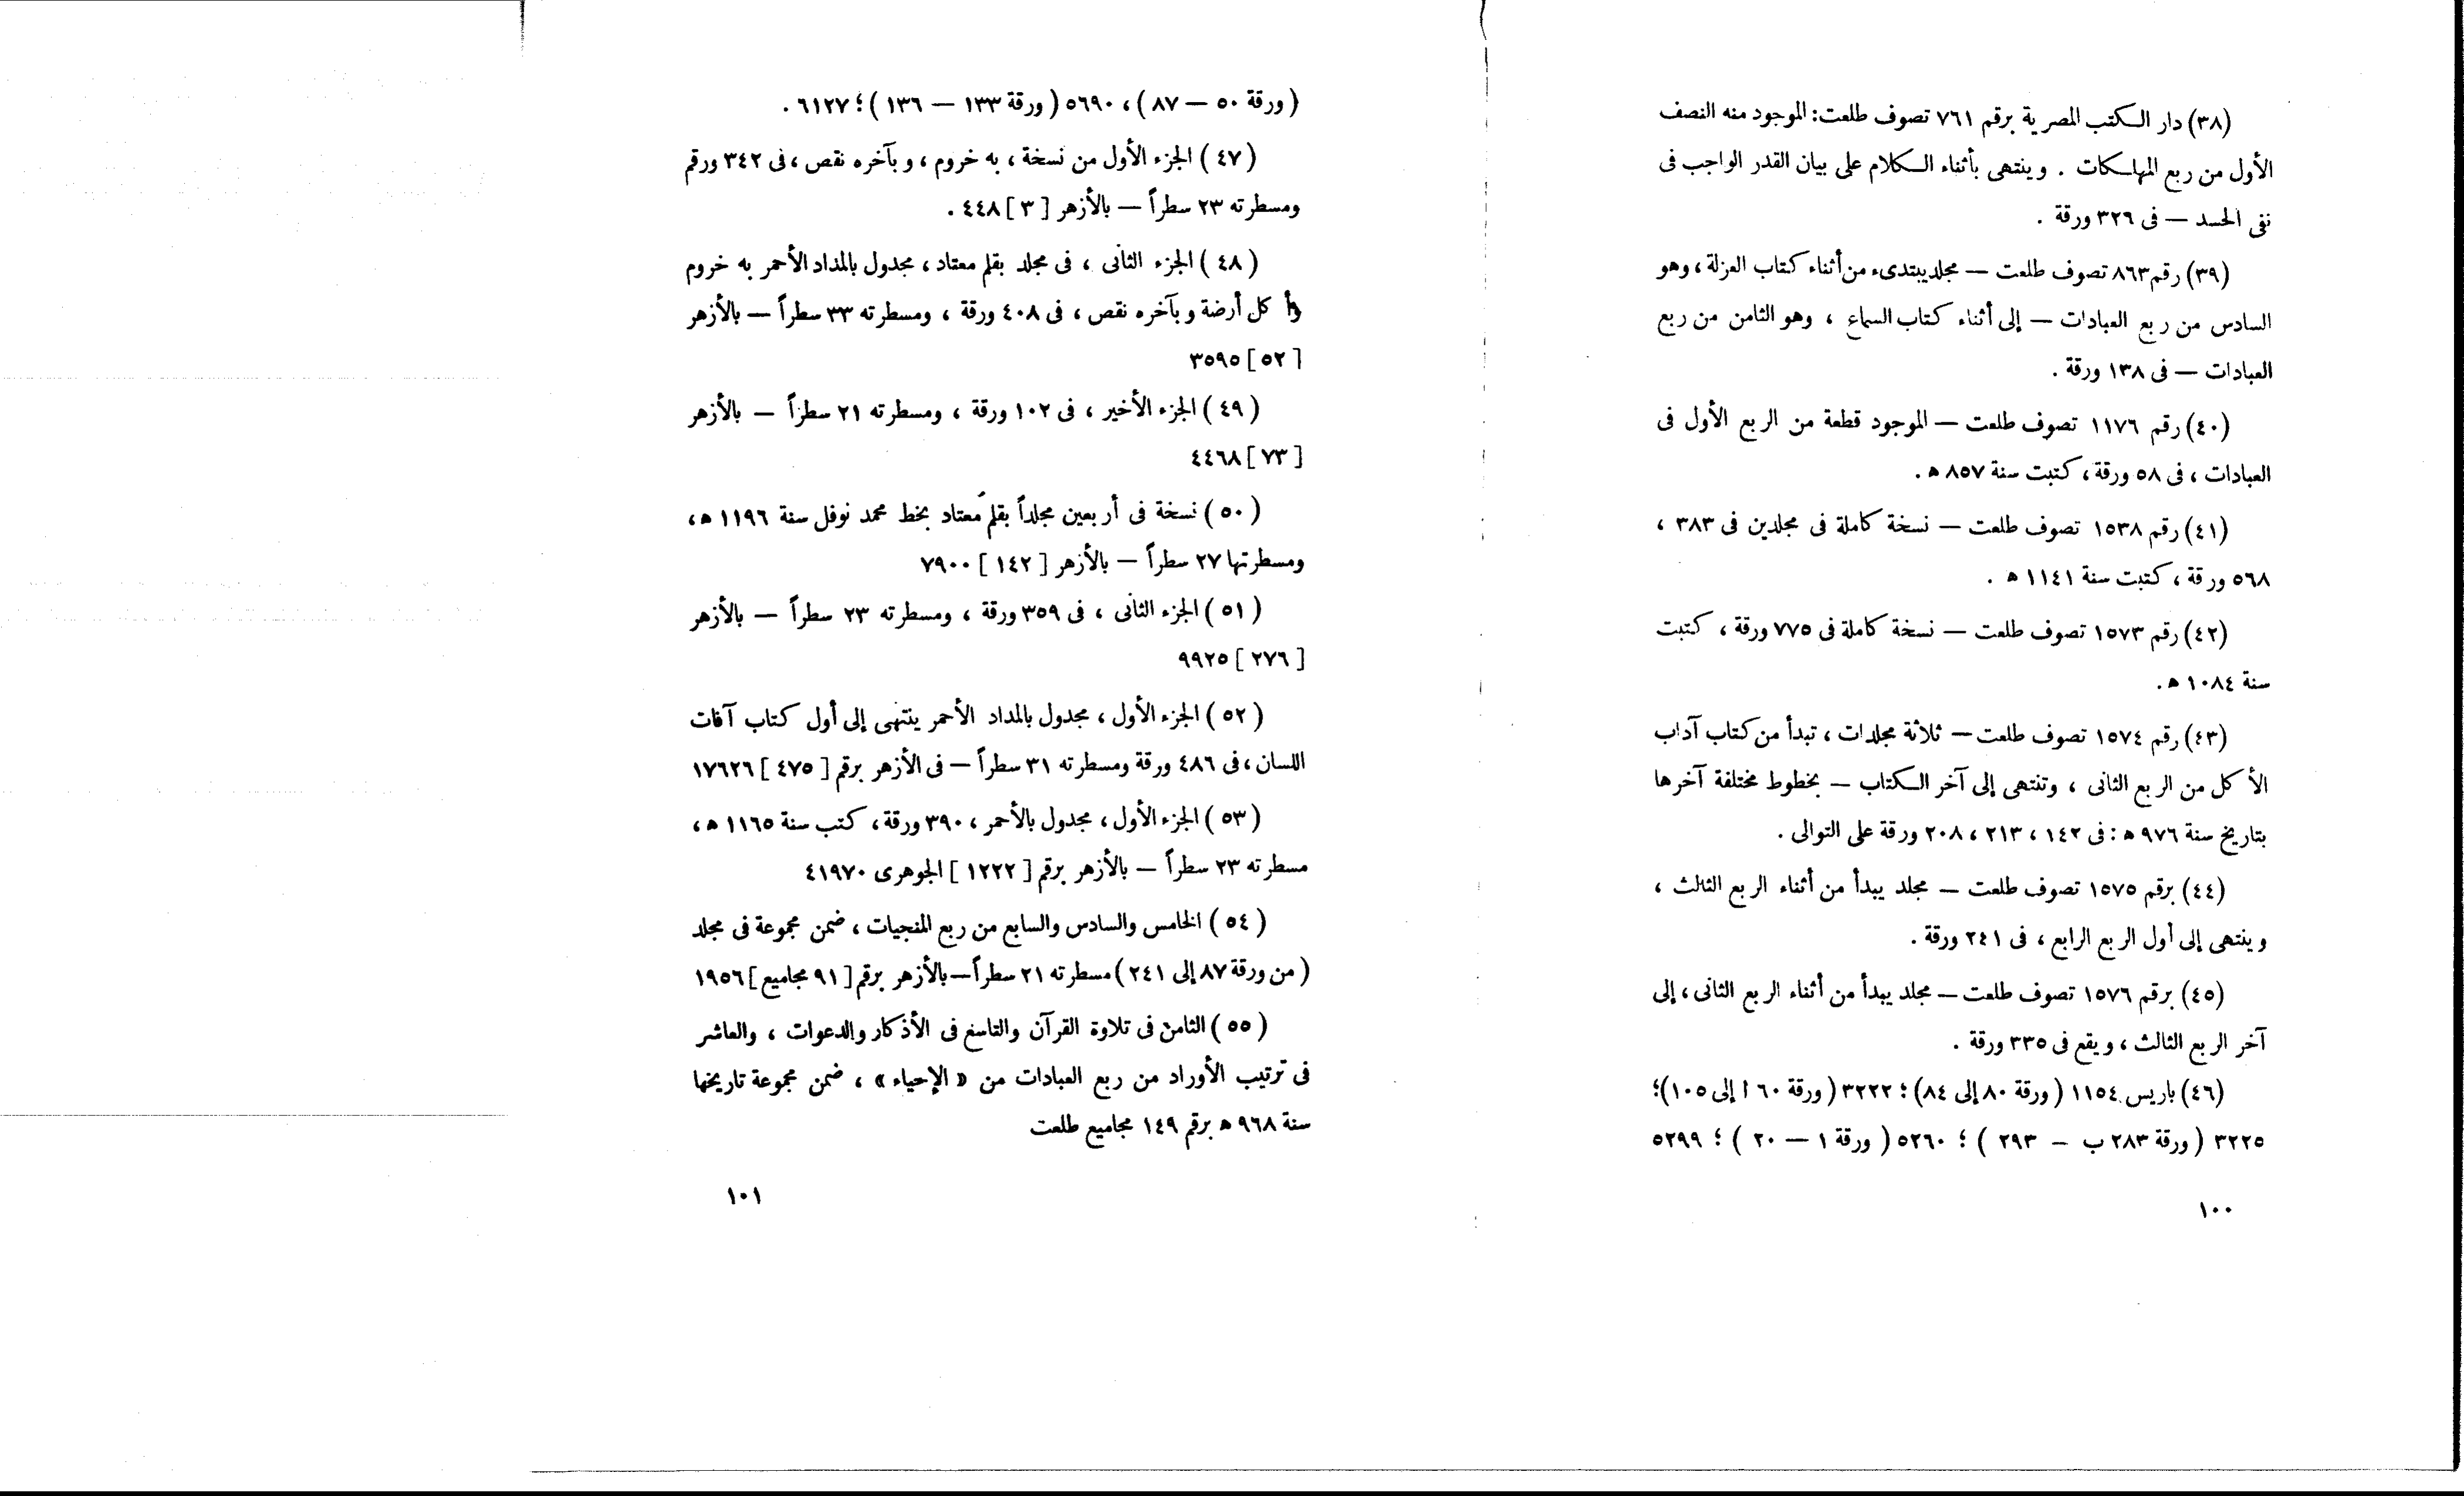 (٣٨) دار الكتب المصرية برقم ٧٦١ تصوف طلعت: الموجود منه النصف
الأول من ربع المهلكات . وينتهى بأثناء الكلام على بيان القدر الواجب فى
نفى الحسد — فى ٣٢٦ ورقة .
(٣٩) رقم ٨٦٣ تصوف طلعت — مجلد يبتدىء من أثناء كتاب العزلة ، وهو
السادس من ربع العبادات — إلى أثناء كتاب السماع ، وهو الثامن من ربع
العبادات — فى ١٣٨ ورقة .
(٤٠) رقم ١١٧٦ تصوف طلعت — الموجود قطعة من الربع الأول فى
العبادات ، فى ٥٨ ورقة ، كتبت سنة ٨٥٧ ه .
(٤١) رقم ١٥٣٨ تصوف طلعت — نسخة كاملة فى مجلدين فى ٣٨٣ ،
٥٦٨ ورقة ، كتبت سنة ١١٤١ ه .
(٤٢) رقم ١٥٧٣ تصوف طلعت — نسخة كاملة فى ٧٧٥ ورقة ، كتبت
سنة ١٠٨٤ ه .
(٤٣) رقم ١٥٧٤ تصوف طلعت — ثلاثة مجلدات ، تبدأ من كتاب آداب
الأكل من الربع الثانى ، وتنتهى إلى آخر الكتاب — بخطوط مختلفة آخرها
بتاريخ سنة ٩٧٦ ه : فى ١٤٢ ، ٢١٣ ، ٢٠٨ ورقة على التوالى .
(٤٤) برقم ١٥٧٥ تصوف طلعت — مجلد يبدأ من أثناء الربع الثالث ،
وينتهى إلى أول الربع الرابع ، فى ٢٤١ ورقة .
(٤٥) برقم ١٥٧٦ تصوف طلعت — مجلد يبدأ من أثناء الربع الثانى ، إلى
آخر الربع الثالث ، ويقع فى ٣٣٥ ورقة .
(٤٦) باريس ١١٥٤ ( ورقة ٨٠ إلى ٨٤) ؛ ٣٢٢٢ ( ورقة ٦٠ ا إلى ١٠٥)؛
٣٢٢٥ ( ورقة ٢٨٣ ب — ٢٩٣ ) ؛ ٥٢٦٠ ( ورقة ١ — ٢٠ ) ؛ ٥٢٩٩
١٠٠
( ورقة ٥٠ — ٨٧ ) ، ٥٦٩٠ ( ورقة ١٣٣ — ١٣٦ ) ؛ ٦١٢٧ .
( ٤٧ ) الجزء الأول من نسخة ، به خروم ، وبآخره نقص ، فى ٣٤٢ ورقم
ومسطرته ٢٣ سطراً — بالأزهر [ ٣ ] ٤٤٨ .
( ٤٨ ) الجزء الثانى ، فى مجلد بقلم معتاد ، مجدول بالمداد الأحمر به خروم
وأكل أرضة وبآخره نقص ، فى ٤٠٨ ورقة ، ومسطرته ٣٣ سطراً — بالأزهر
[ ٥٢ ] ٣٥٩٥
( ٤٩ ) الجزء الأخير ، فى ١٠٢ ورقة ، ومسطرته ٢١ سطراً — بالأزهر
[ ٧٣ ] ٤٤٦٨
( ٥٠ ) نسخة فى أربعين مجلداً بقلم معتاد بخط محمد نوفل سنة ١١٩٦ ه ،
ومسطرتها ٢٧ سطراً — بالأزهر [ ١٤٢ ] ٧٩٠٠
( ٥١ ) الجزء الثانى ، فى ٣٥٩ ورقة ، ومسطرته ٢٣ سطراً — بالأزهر
[ ٢٧٦ ] ٩٩٢٥
( ٥٢ ) الجزء الأول ، مجدول بالمداد الأحمر ينتهى إلى أول كتاب آفات
اللسان ، فى ٤٨٦ ورقة ومسطرته ٣١ سطراً — فى الأزهر برقم [ ٤٧٥ ] ١٧٦٢٦
( ٥٣ ) الجزء الأول ، مجدول بالأحمر ، ٣٩٠ ورقة ، كتب سنة ١١٦٥ ه ،
مسطرته ٢٣ سطراً — بالأزهر برقم [ ١٢٢٢ ] الجوهرى ٤١٩٧٠
( ٥٤ ) الخامس والسادس والسابع من ربع المنجيات ، ضمن مجموعة فى مجلد
( من ورقة ٨٧ إلى ٢٤١ ) مسطرته ٢١ سطراً — بالأزهر برقم [ ٩١ مجاميع ] ١٩٥٦
( ٥٥ ) الثامن فى تلاوة القرآن والتاسع فى الأذكار والدعوات ، والعاشر
فى ترتيب الأوراد من ربع العبادات من « الإحياء » ، ضمن مجموعة تاريخها
سنة ٩٦٨ ه برقم ١٤٩ مجاميع طلعت
١٠١